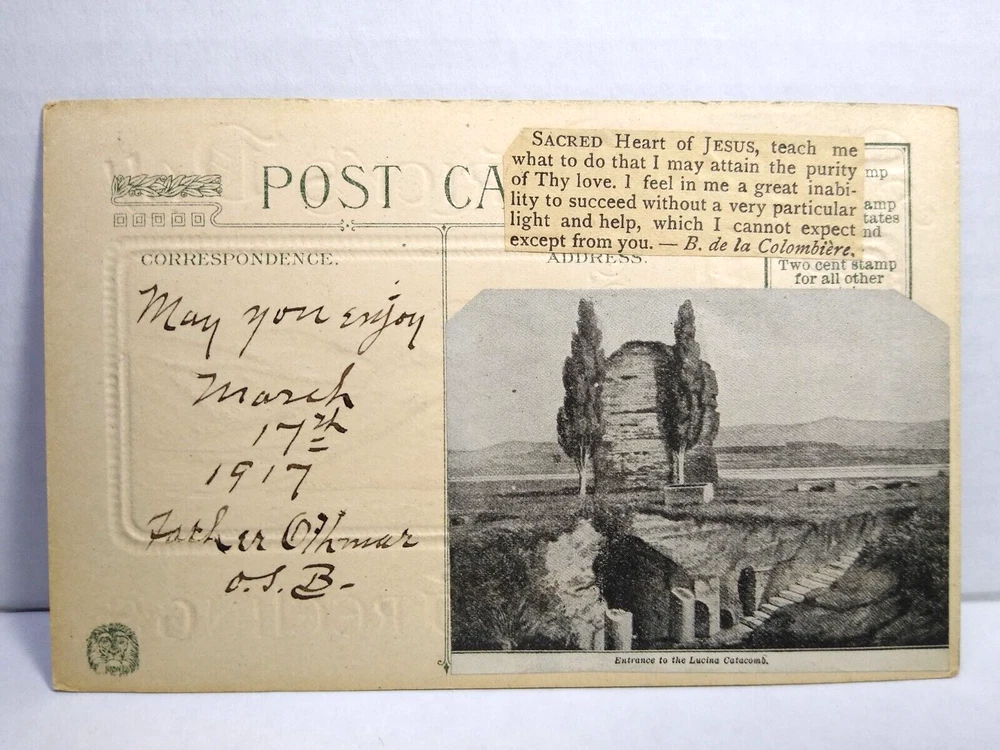 POST CA
SACRED Heart of JESUS, teach me
what to do that I may attain the purity
of Thy love. I feel in me a great inabi-
lity to succeed without a very particular
light and help, which I cannot expect
except from you. — B. de la Colombière.
mp
amp
tates
nd
Two cent stamp
for all other
CORRESPONDENCE.
ADDRESS.
May you enjoy
March
17th
1917
Father Othmar
O.S.B-
Entrance to the Lucina Catacomb.